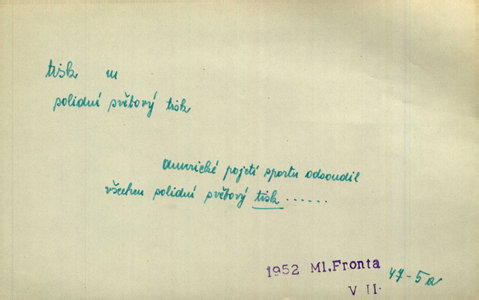 tisk m
solidní světový tisk
americké pojetí sportu odsoudil
všechen solidní světový tisk ......
1952 Ml.Fronta 47-5a
V II.